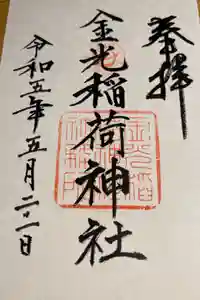 奉拝
金光稲荷神社
令和五年五月二十一日